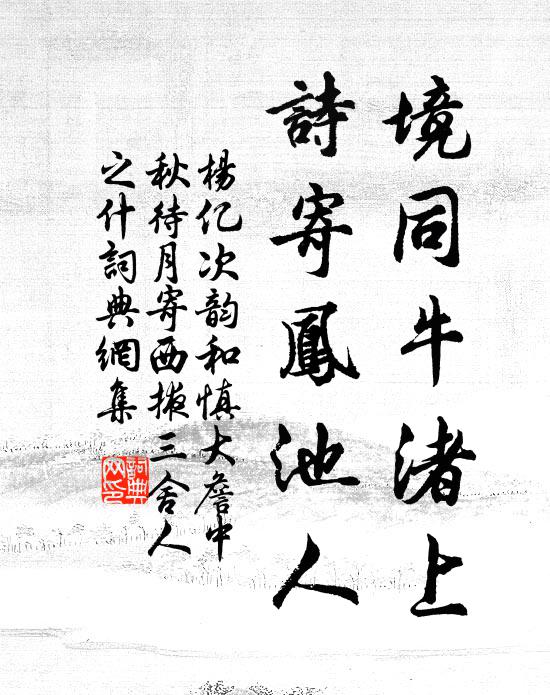 境同牛渚上
詩寄鳳池人
楊亿次韵和慎大詹中
秋待月寄西掖三舍人
之什詞典網集
詞典
网印